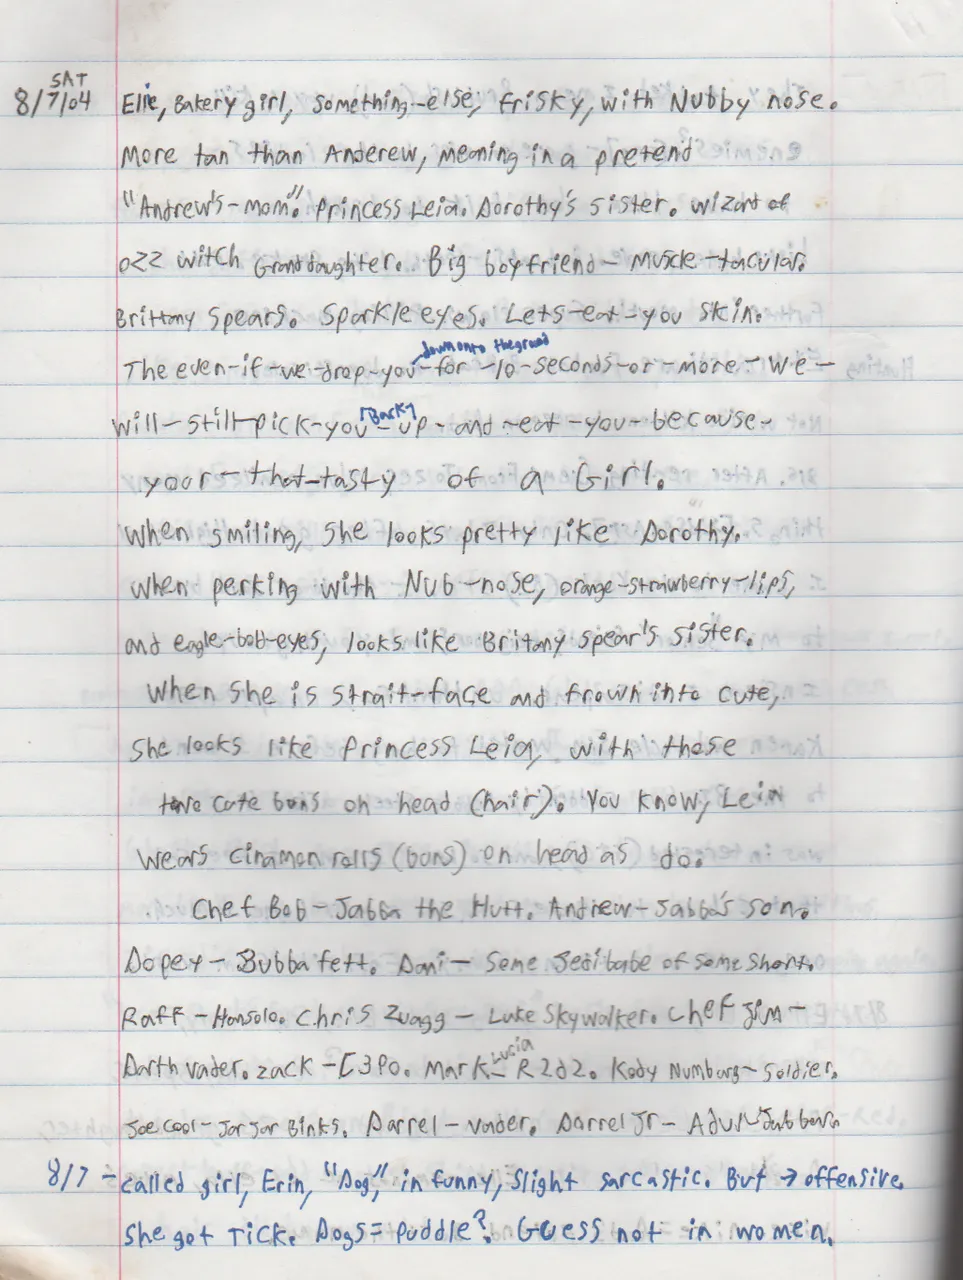 SAT
8/7/04 Elle, Bakery girl, something-else, frisky, with Nubby nose.
More tan than Anderew, meaning in a pretend
"Andrew's-mom". Princess Leia. Dorothy's sister. Wizard of
ozz witch Granddaughter. Big boyfriend- muscle-tacular.
Brittany Spears. Sparkle eyes. Lets-eat-you skin.
down onto the ground
The even-if-we-drop-you-for-10-seconds-or-more-we-
Back
will-still-pick-you-up-and-eat-you-because-
your-that-tasty of a Girl.
When smiling, she looks pretty like Dorothy.
When perking with Nub-nose, orange-strawberry-lips,
and eagle-bott-eyes, looks like Britany Spear's sister.
When she is strait-face and frown into cute,
she looks like Princess Leia, with those
cute buns on head (hair). You know, Leia
wears cinamon rolls (buns) on head as do.
Chef Bob-Jabba the Hutt. Andrew-Jabba's son.
Dopey-Bubba fett. Dani- Some Jedi babe of some short.
Raff-Hansolo. Chris Zuagg- Luke Skywalker. Chef Jim-
Lucia
Darth vader. Zack-C3PO. Mark- R2d2. Kody Numburg-soldier.
Joe cool-Jar Jar Binks. Darrel-vader. Darrel Jr-
8/7 -called girl, Erin, "Dog", in funny, slight sarcastic. But → offensive.
She got TICK. Dogs=Puddle? Guess not in women.